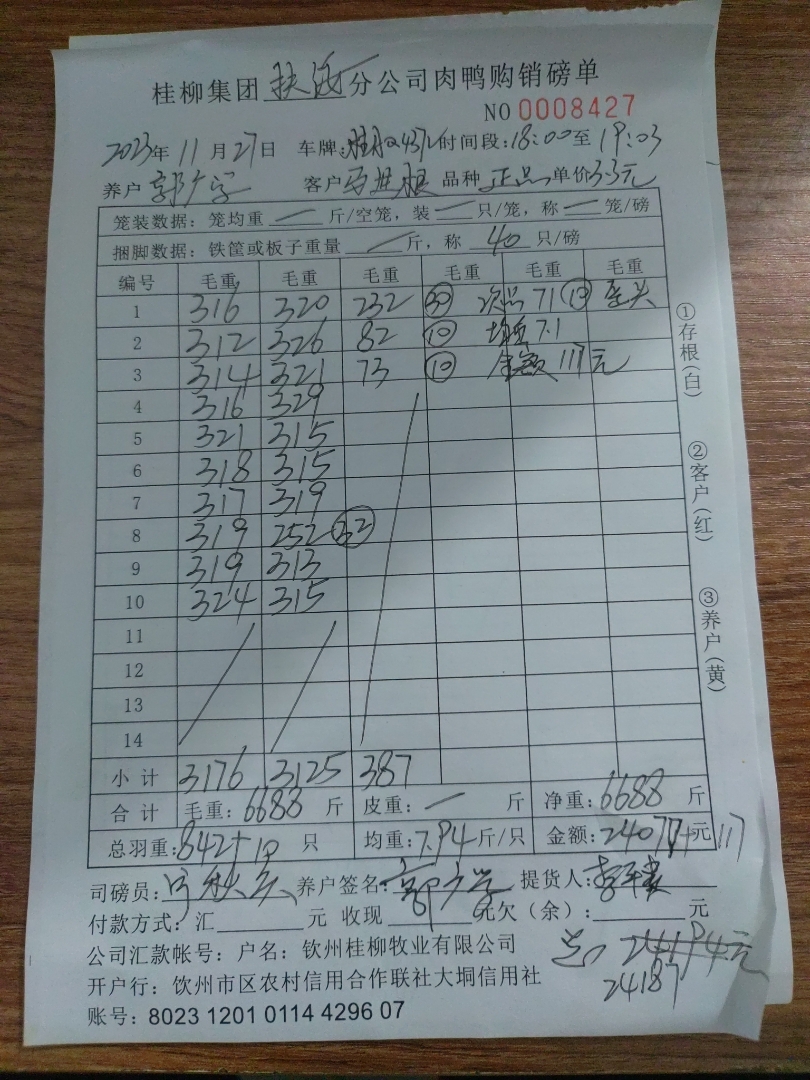 桂柳集团 分公司肉鸭购销磅单
NO 0008427
2023年 11月27日 车牌: 4372 时间段:18:00至19:03
养户 郭广学 客户 马进根 品种 正品 单价3.3元
笼装数据:笼均重 — 斤/空笼,装 — 只/笼,称 — 笼/磅
捆脚数据:铁筐或板子重量 — 斤,称 40 只/磅
编号 毛重 毛重 毛重 毛重 毛重 毛重
1 316 320 232 30 次品 71 10
2 312 326 82 10 均重 7.1
3 314 321 73 10 金额 117元
4 316 329
5 321 315
6 318 315
7 317 319
8 319 252 32
9 319 313
10 324 315
11
12
13
14
小计 3176 3125 387
合计 毛重:6688 斤 皮重:— 斤 净重:6688 斤
总羽重:842+10 只 均重:7.94斤/只 金额: 元 117
司磅员: 养户签名:郭广学 提货人:
付款方式:汇 元 收现 元欠(余): 元
公司汇款帐号:户名:钦州桂柳牧业有限公司
开户行:钦州市区农村信用合作联社大垌信用社
24187
账号:8023 1201 0114 4296 07
①存根(白)
②客户(红)
③养户(黄)